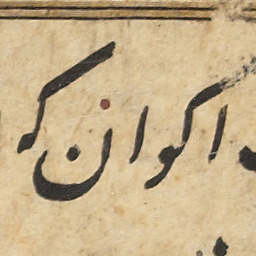 اکوان که